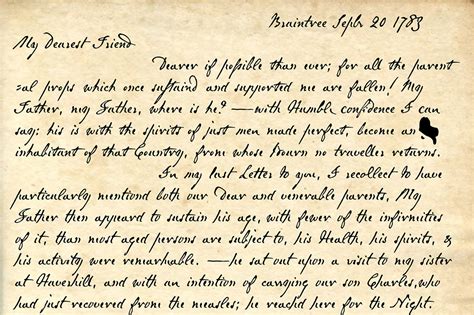 Braintree Sepbr 20 1783
My Dearest Friend
Dearer if possible than ever; for all the parent
=al props which once sustaind and supported me are fallen! My
Father, my Father, where is he? —with Humble confidence I can
say; his is with the spirits of just men made perfect, become an
inhabitant of that Country, from whose Bourn no traveller returns.
In my last Letter to you, I recollect to have
particularly mentiond both our Dear and venerable parents, My
Father then appeard to sustain his age, with fewer of the infirmities
of it, than most aged persons are subject to, his Health, his spirits, &
his activity were remarkable. —he sat out upon a visit to my sister
at Haverhill, and with an intention of carrying our son Charles, who
had just recovered from the measles; he reachd here for the Night.